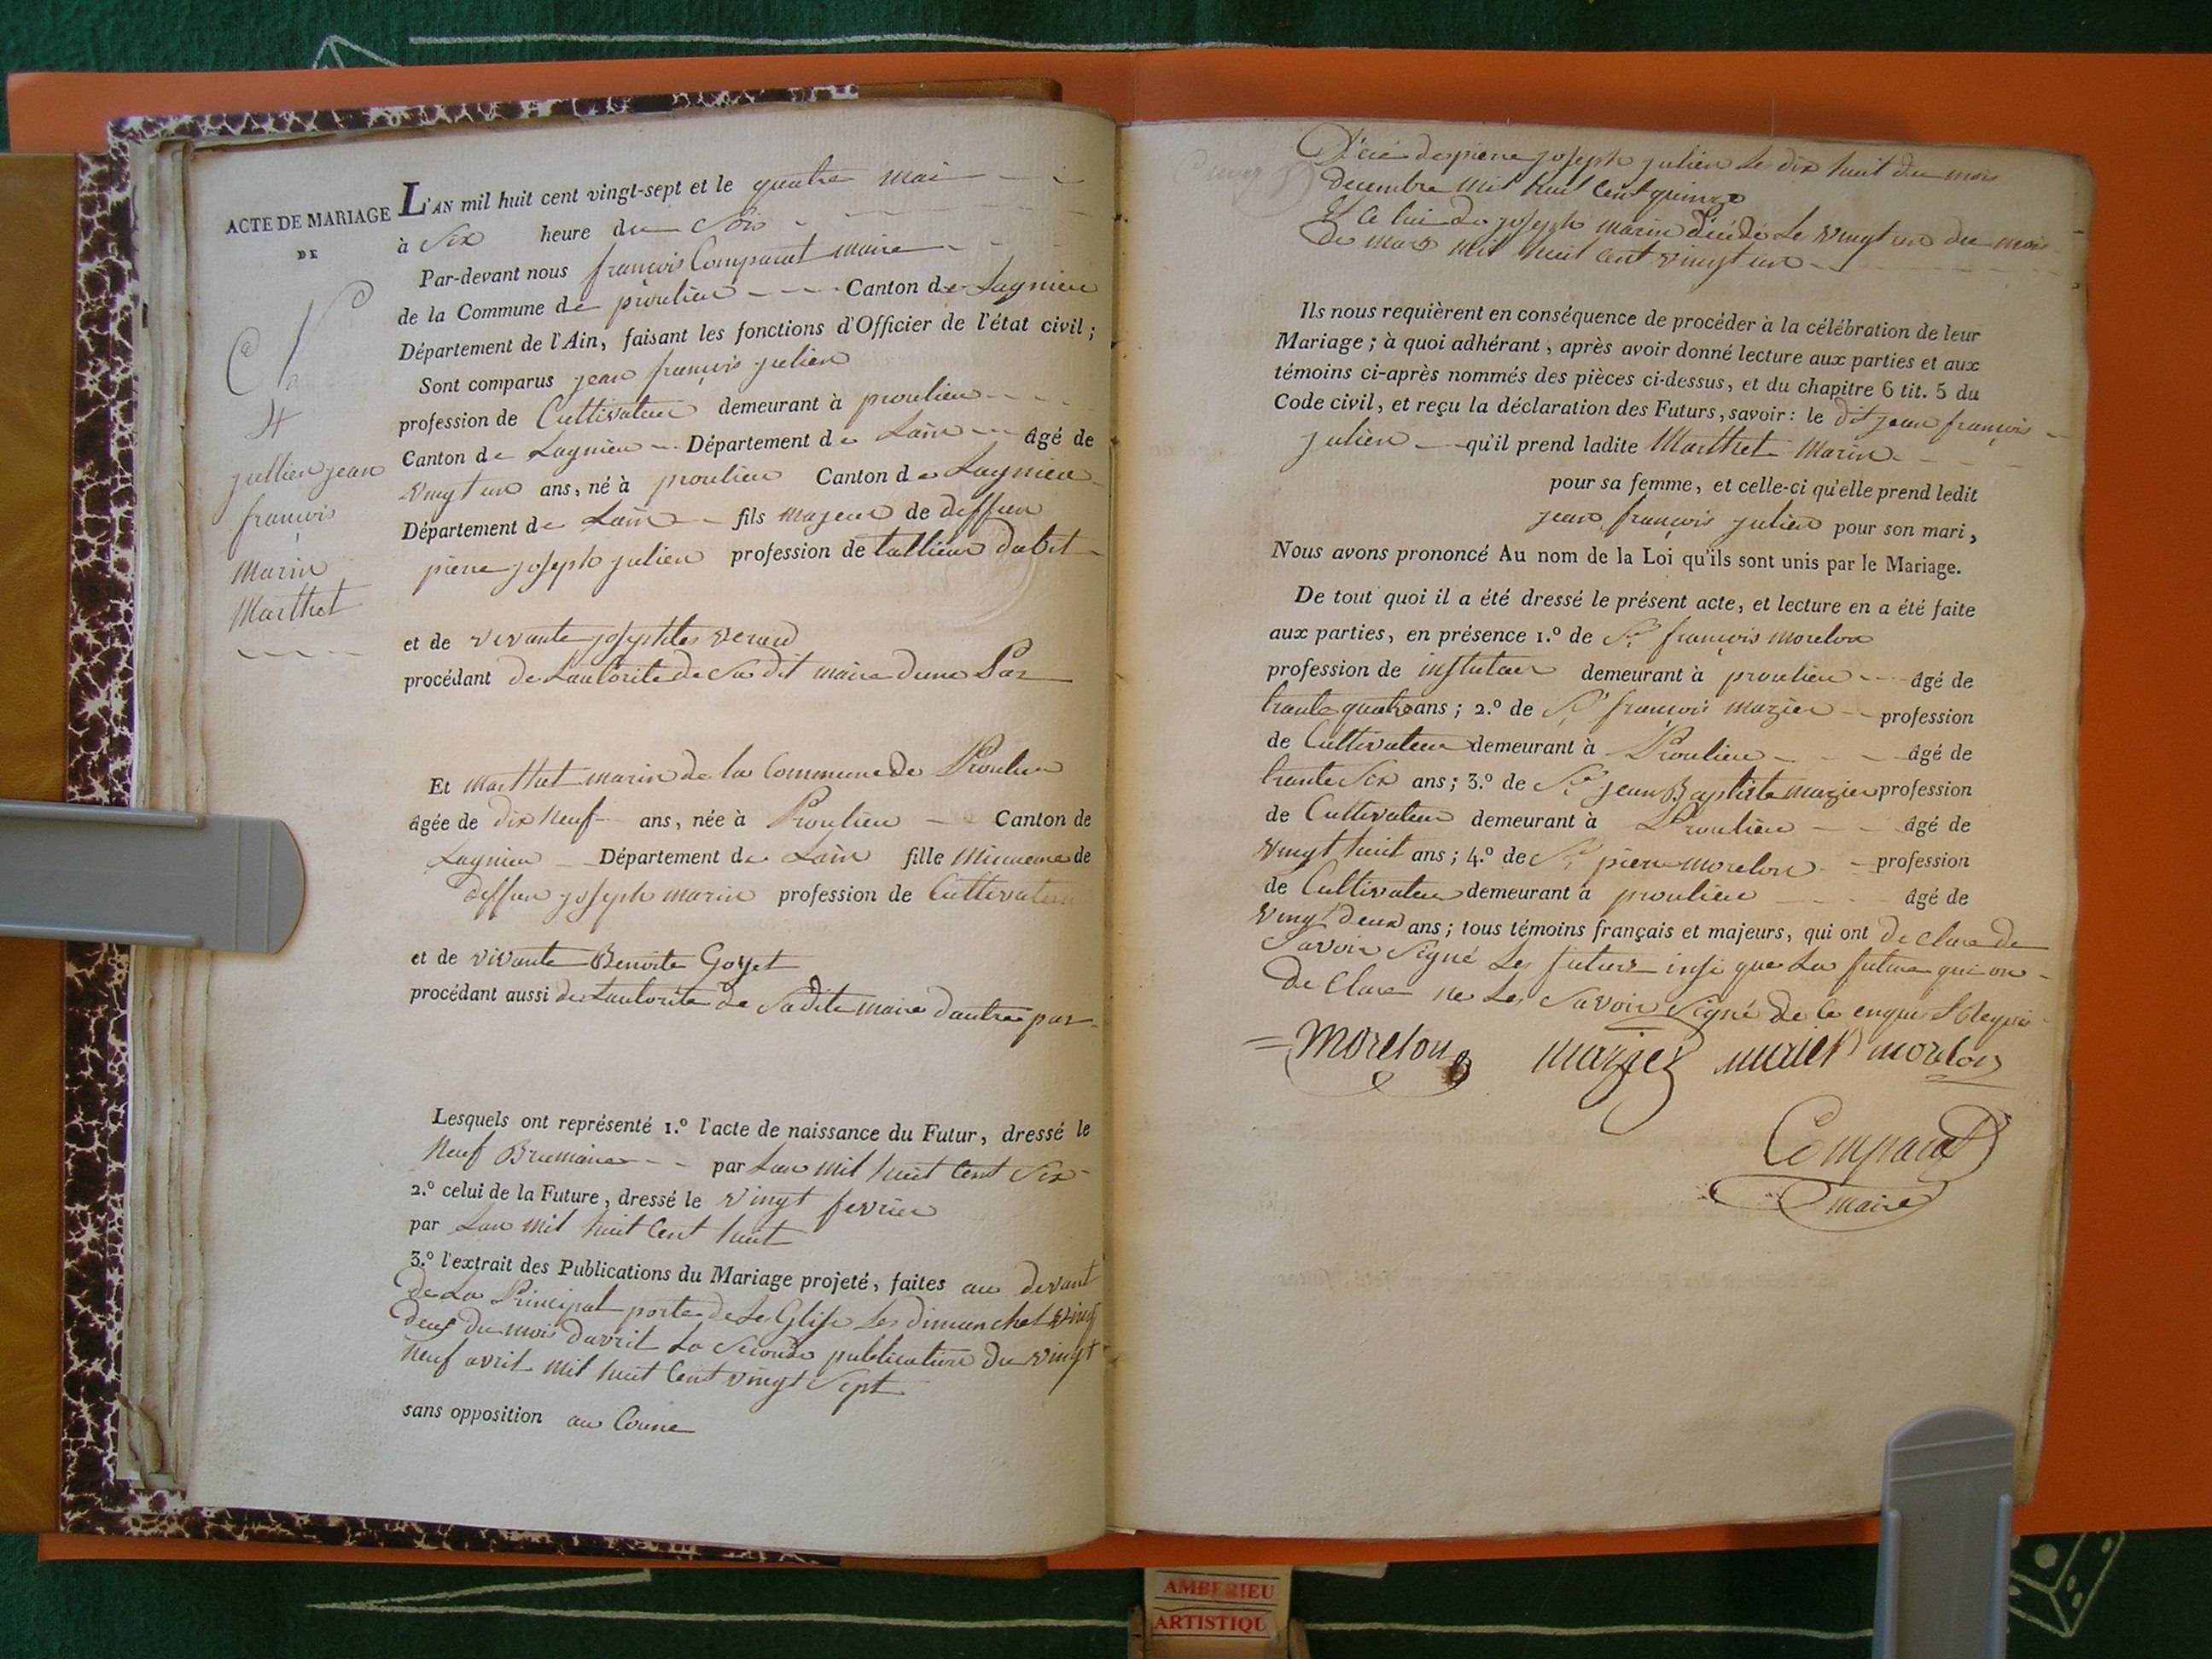 ACTE DE MARIAGE
DE
4
jullien jean
françois
Marin
Marthet
L'AN mil huit cent vingt-sept et le quatre mai
à Six heure du Soir
Par-devant nous françois Comparat maire
de la Commune de proulieu Canton de Lagnieu
Département de l'Ain, faisant les fonctions d'Officier de l'état civil ;
Sont comparus jean françois julien
profession de Cultivateur demeurant à proulieu
Canton de Lagnieu Département de Lain âgé de
vingt un ans, né à proulieu Canton de Lagnieu
Département de Lain fils majeur de deffun
pierre joseph julien profession de tallieur dabit
et de vivante josephte
procédant de Lautorite de Sa dit maire dune Par
Et Marthet marin de la Commune de Proulieu
âgée de dix Neuf ans, née à Proulieu Canton de
Lagnieu Département de Lain fille de
deffun joseph marin profession de Cultivateur
et de vivante Benoite Goyet
procédant aussi de Lautorite de Sadite maire dautre par
Lesquels ont représenté 1.º l'acte de naissance du Futur, dressé le
Neuf Brumaire par Lan mil huit Cent Six
2.º celui de la Future, dressé le vingt fevrier
par Lan mil huit Cent huit
3.º l'extrait des Publications du Mariage projeté, faites au devant
de La Principal porte de Le Glise Les dimanchet vingt
deux du mois davril La Seconde publication du vingt
Neuf avril mil huit Cent vingt Sept
sans opposition au Coune
de pierre joseph julien Le dix huit du mois
decembre mil huit Cent quinze
Et Ce lui de joseph marin décédé Le vingt un du mois
de mars mil huit Cent vingt un
Ils nous requièrent en conséquence de procéder à la célébration de leur
Mariage ; à quoi adhérant, après avoir donné lecture aux parties et aux
témoins ci-après nommés des pièces ci-dessus, et du chapitre 6 tit. 5 du
Code civil, et reçu la déclaration des Futurs, savoir : le dit jean françois
julien qu'il prend ladite Marthet Marin
pour sa femme, et celle-ci qu'elle prend ledit
jean françois julien pour son mari,
Nous avons prononcé Au nom de la Loi qu'ils sont unis par le Mariage.
De tout quoi il a été dressé le présent acte, et lecture en a été faite
aux parties, en présence 1.º de Sr françois morelon
profession de demeurant à proulieu âgé de
trante quatre ans ; 2.º de Sr françois mazier profession
de Cultivateur demeurant à Proulieu âgé de
trante Six ans ; 3.º de Sr jean Baptiste mazier profession
de Cultivateur demeurant à Proulieu âgé de
vingt huit ans ; 4.º de Sr pierre morelon profession
de Cultivateur demeurant à proulieu âgé de
vingt deux ans ; tous témoins français et majeurs, qui ont de clare de
Savoir Signé Les futurs insi que La future qui on
de Clare ne Les Savoir Signé de Ce enquis
Morelon mazier morelon
Comparat
maire
AMBERIEU
ARTISTIQU